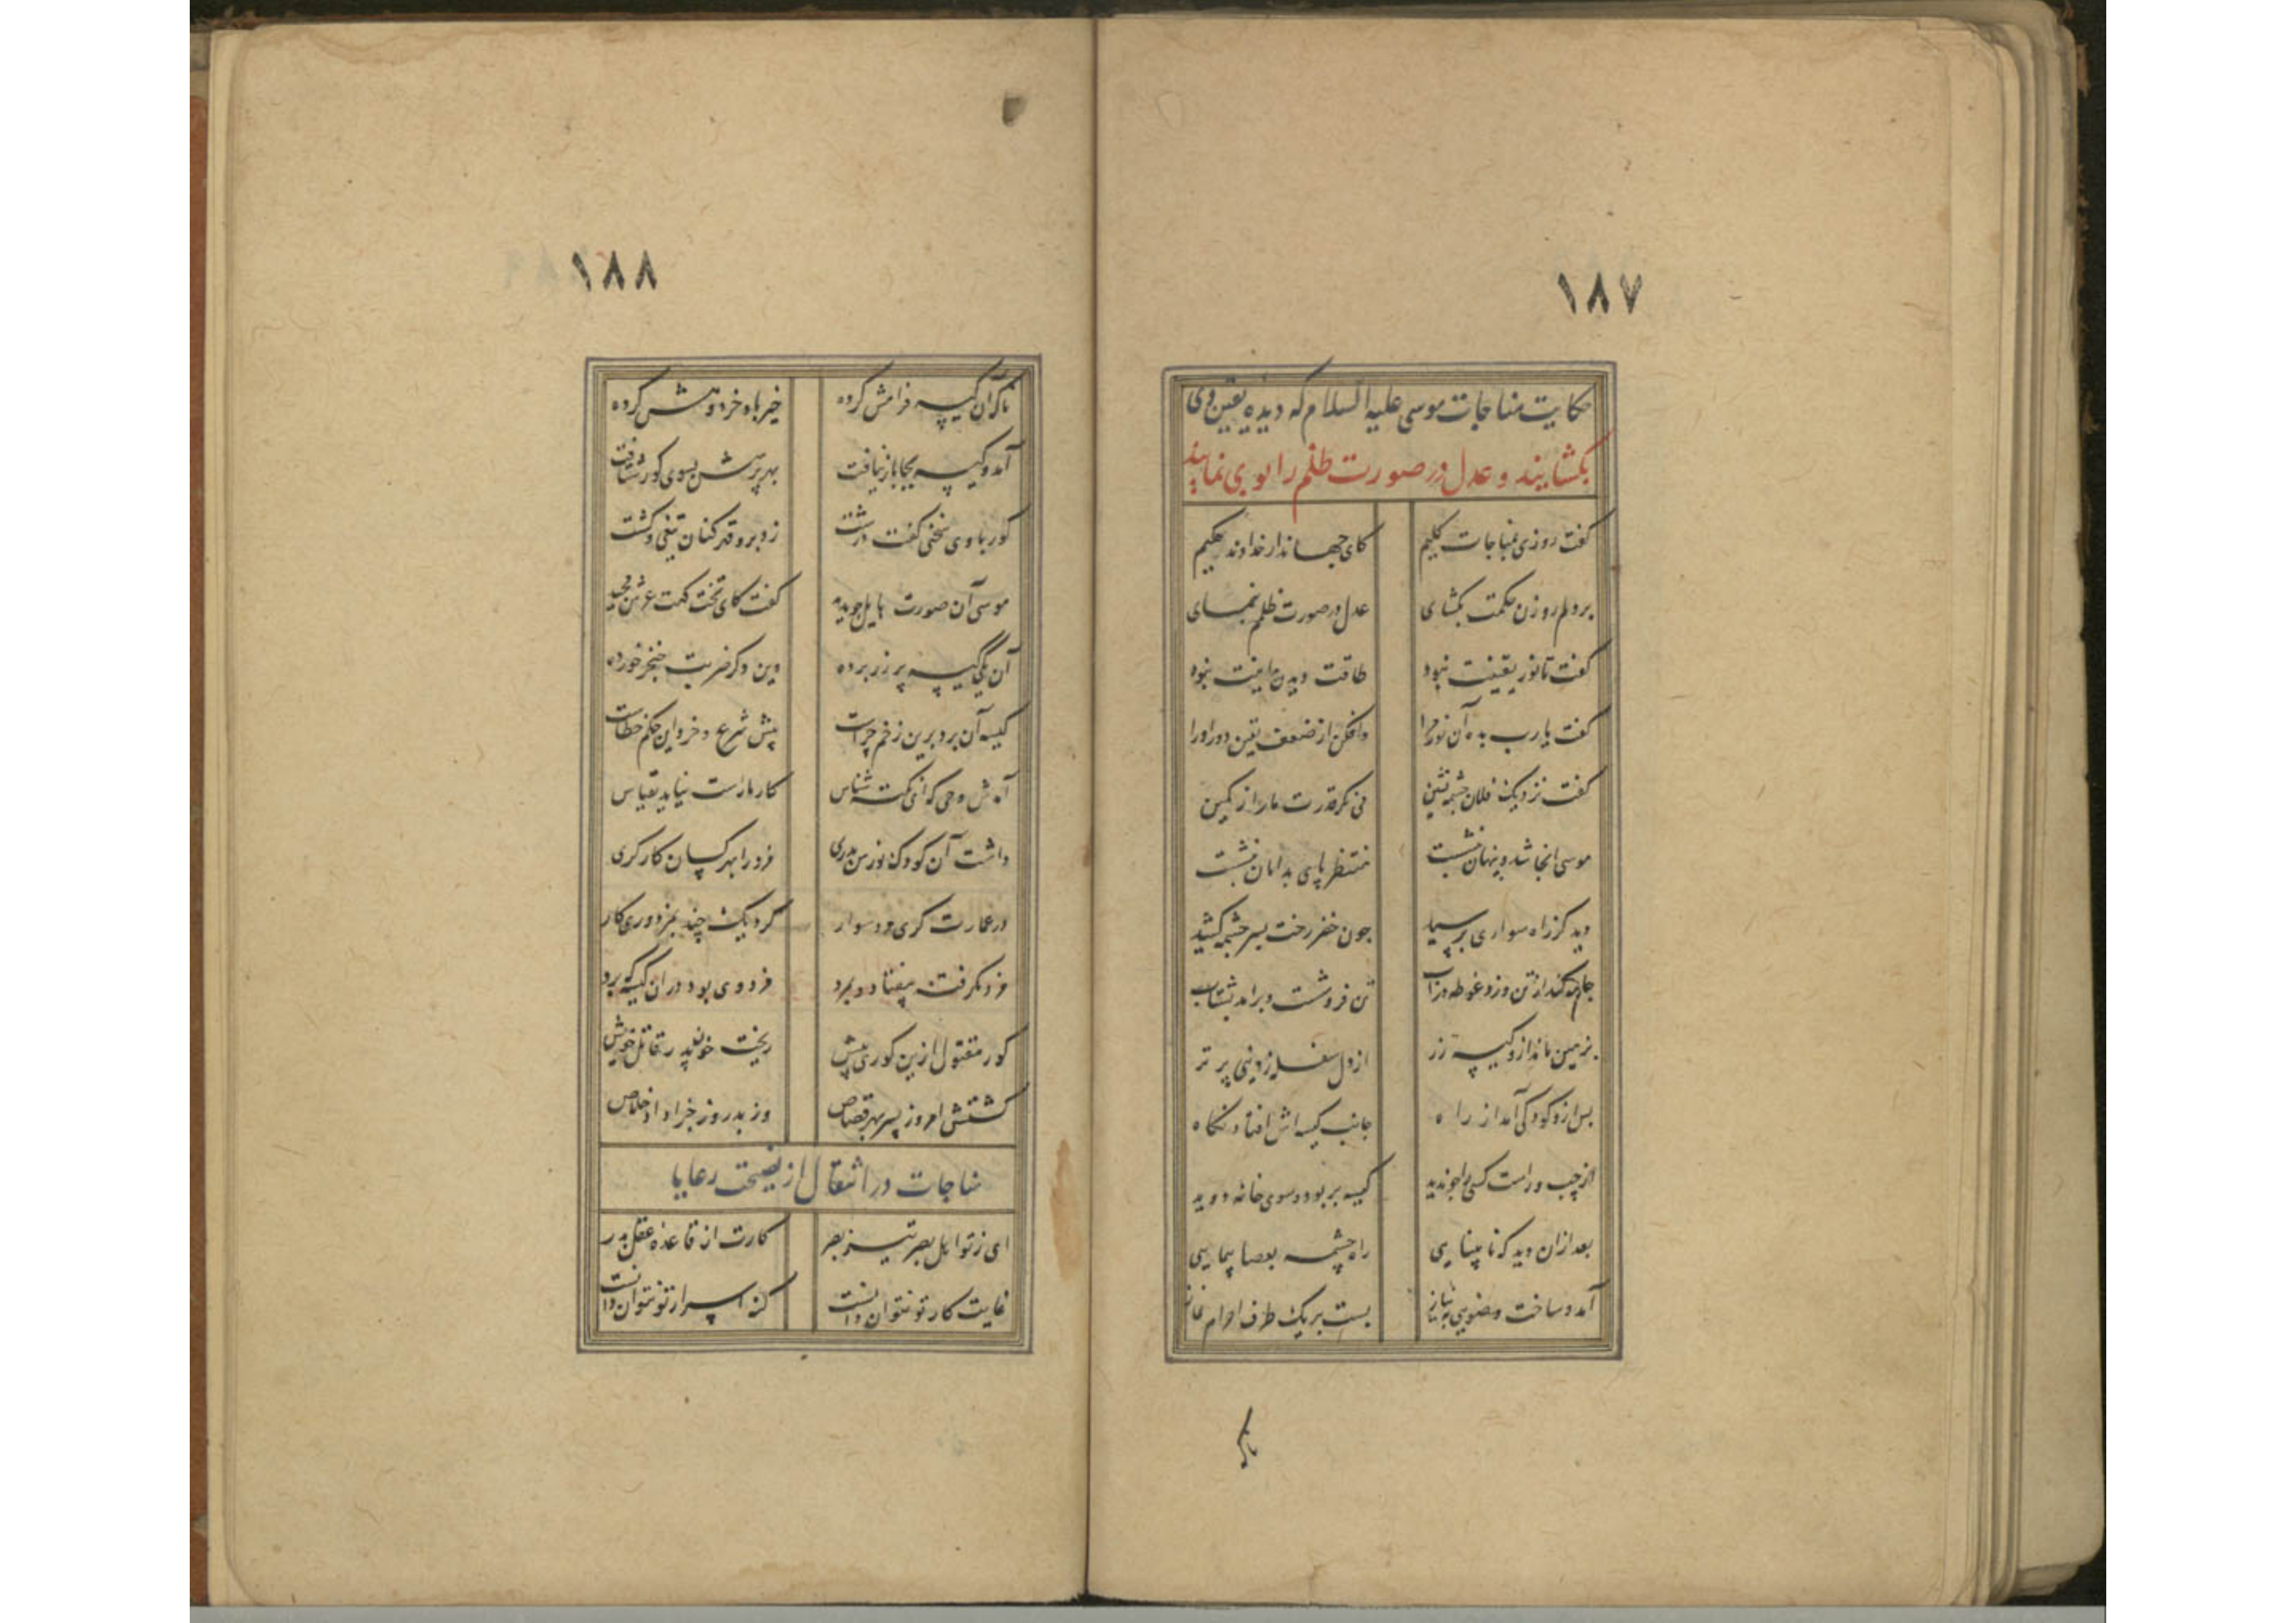 ۱۸۷
حکایت مناجات موسی علیه السلام که دیده یقین وی
بکشایند و عدل در صورت ظلم را بوی نمایند
کفت روزی بمناجات کلیم کای جهاندار خداوند حکیم
بر دلم روزن حکمت بکشای عدل در صورت ظلمم بنمای
کفت تا نور یقینت نبود طاقت دیدن ما اینت نبود
کفت یا رب بده آن نور مرا وافکن از ضعف یقین دور او را
کفت نزدیک فلان چشمه نشین می نکر قدرت ما را ز کمین
موسی انجا شد و پنهان بنشست منتظر پای بدامان بنشست
دید کز راه سواری برسید چون خضر رخت بسر چشمه کشید
جامه کند از تن و زد غوطه در آب تن فرو شست و برامد بشتاب
بر زمین ماند ازو کیسه زر از دل سفله ز دنیی پر تر
پس ازو کودکی آمد از راه جانب کیسه اش افتاد نکاه
از چپ و راست کسی را چو ندید کیسه بربود و سوی خانه دوید
بعد ازان دید که نابینایی راه چشمه بعصا پیمایی
آمد و ساخت وضویی بنیاز بست بر یک طرف احرام نماز
ناکه
۱۸۸
ناکه آن کیسه فرامش کرده خیر باد خرد و هش کرده
آمد و کیسه بجا باز نیافت بهر پرسش بسوی کور شتافت
کور با وی سخنی کفت درشت زد برو قهرکنان تیغی و کشت
موسی آن صورت هایل چو بدید کفت کای تخت کهت عرش مجید
آن یکی کیسه پر زر برده وین دکر ضربت خنجر خورده
کیسه آن برد برین زخم چراست پیش شرع و خرد این حکم خطاست
آمدش وحی که ای نکته شناس کار ما راست نیاید بقیاس
داشت آن کودک نورس پدری مزد را بهر کسان کارکری
در عمارت کری مرد سوار کرد یک چند بمزدوری کار
مزد نکرفت بیفتاد و بمرد مزد وی بود دران کیسه که برد
کور مقتول ازین کوری پیش ریخت خون پدر قاتل خویش
کشتش امروز پسر بهر قصاص وز بد روز جزا داد خلاص
مناجات در انتقال از نصیحت رعایا
ای ز تو اهل بصر تیز بصر کارت از قاعده عقل بدر
غایت کار تو نتوان دانست کنه اسرار تو نتوان دانست